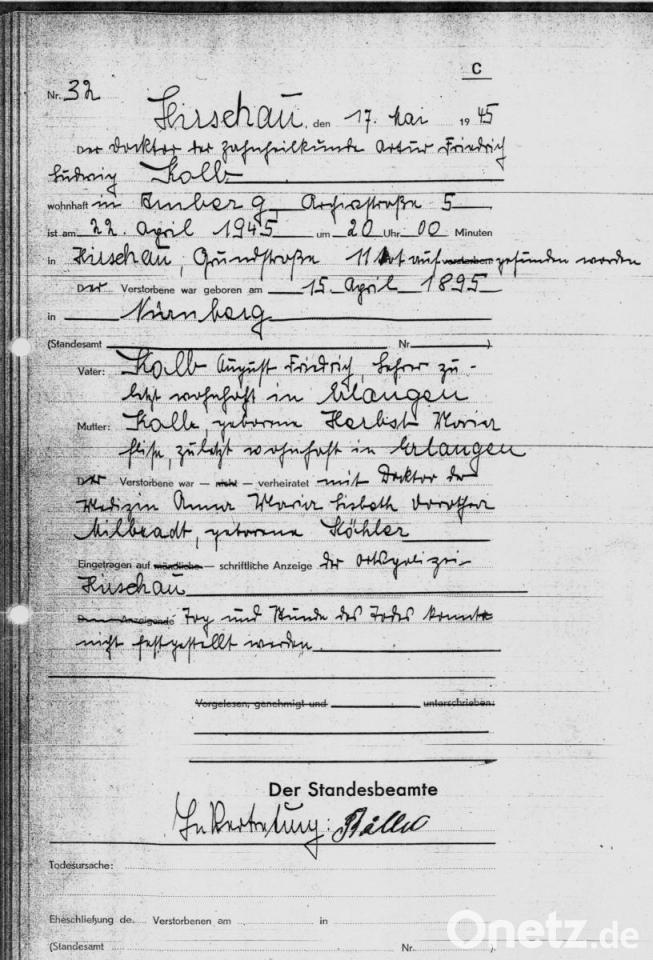 C
Nr. 32
Hirschau, den 17. Mai 1945
Der Docktor der Zahnheilkunde Artur Friedrich
Ludwig Kolb
wohnhaft in Amberg, 5
ist am 22. April 1945 um 20 Uhr 00 Minuten
in Hirschau, Grundstraße 11 tot aufverstorben gefunden worden
Der Verstorbene war geboren am 15. April 1895
in Nürnberg
(Standesamt Nr. )
Vater: Kolb August Friedrich Lehrer zu-
letzt wohnhaft in Erlangen
Mutter: Kolb, geborene Herbst Maria
Elise, zuletzt wohnhaft in Erlangen
Der Verstorbene war — nicht — verheiratet mit Docktor der
Medizin Anna Maria Lisbeth Dorothea
Milbradt, geborene Köhler
Eingetragen auf mündliche — schriftliche Anzeige der Ortspolizei
Hirschau
D Anzeigende Tag und Stunde des Todes konnte
nicht festgestellt werden.
Vorgelesen, genehmigt und unterschrieben:
Der Standesbeamte
In Vertretung:
Todesursache:
Eheschließung de. Verstorbenen am in
(Standesamt Nr. ).
Onetz.de